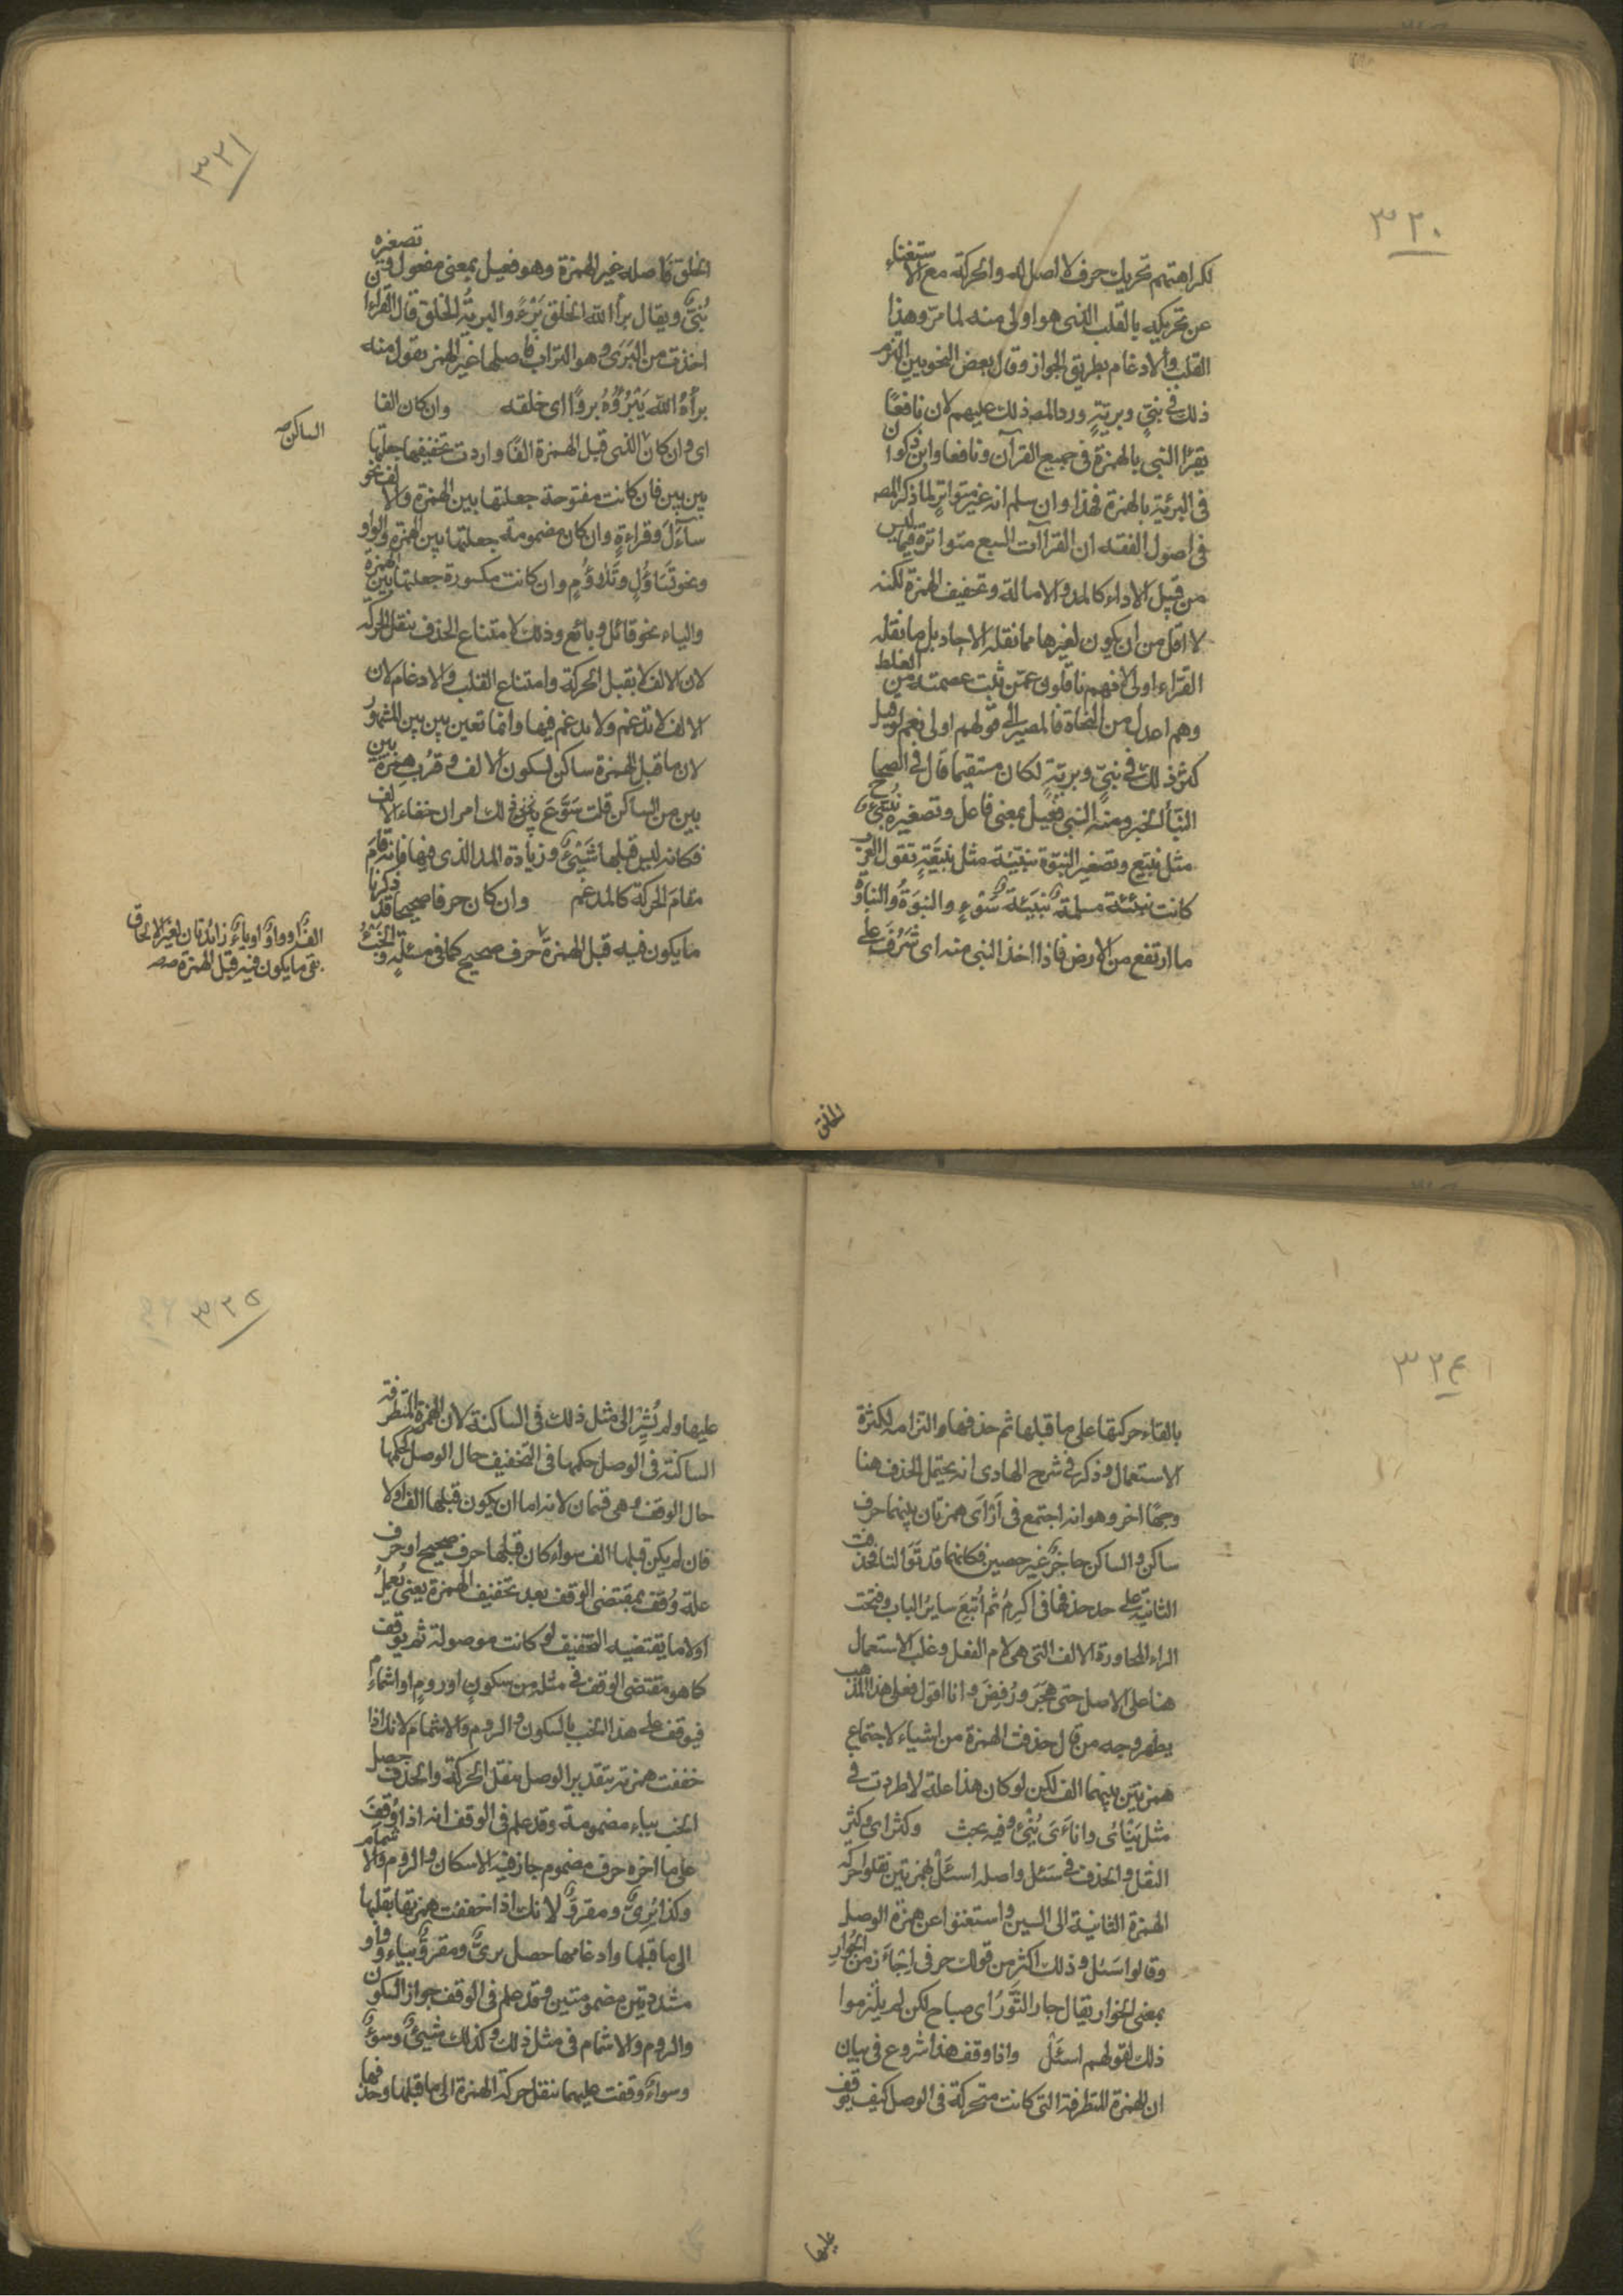 ٣٢٠
لكراهتهم تحريك حرف لا اصل له والحركة مع الاستغناء
عن تحريكه بالقلب الذى هو اولى منه لما مرّ وهذا
القلب والادغام بطريق الجواز وقال بعض النحويين التزم
ذلك فى نبىّ وبريّةٍ ورد المصـ ذلك عليهم لان نافعًا
يقرأ النبى بالهمزة فى جميع القرآن ونافعا وابن ذكوان
فى البريئة بالهمزة فهذا وان سلم انه غير متواتر لما ذكر المصـ
فى اصول الفقه ان القرآات السبع متواترة فيما ليس
من قبيل الاداء كالمد والامالة وتخفيف الهمزة لكنه
لا اقل من ان يكون لغيرها مما نقله الاحاد بل ما نقله
القراء اولى لانهم ناقلون عمّن ثبت عصمته من الغلط
وهم اعدل من النحاة فالمصير الى قولهم اولى نعم لو قيل
كثر ذلك فى نبىّ وبريّةٍ لكان مستقيما قال فى الصحاح
النبأ الخبر ومنه النبى فعيل بمعنى فاعل وتصغيره نُبَيِّئ
مثل نبيّع وتصغير النبوّة نبيّئة مثل نبيّعةٍ تقول العرب
كانت نبيّئة مسلمة نبيّئة سَوْءٍ والنبوَةُ والنباوة
ما ارتفع من الارض فاذا اخذ النبى منه اى شَرُفَ على
الخلق
٣٢١
الخلق فاصله غير الهمزة وهو فعيل بمعنى مفعول وتصغيره
نُبَىٌّ ويقال برأ الله الخلق بَرْءً والبريّة الخلق قال الفراء ان
اخذت من البَرَى وهو التراب فاصلها غير الهمز تقول منه
برأهُ الله يَبْرُؤُهُ بروًا اى خلقه وان كان الفا
الساكن صـ
اى وان كان الذى قبل الهمزة الفًا واردت تخفيفها جعلتها
بين بين فان كانت مفتوحة جعلتها بين الهمزة والالف نحو
سآءَلَ وقراءةٍ وان كان مضمومة جعلتها بين الهمزة والواو
ونحو تَسَاؤُلٍ وتَلاؤُمٍ وان كانت مكسورة جعلتها بين الهمزة
والياء نحو قائل وبائع وذلك لامتناع الحذف بنقل الحركة
لان الالف لا يقبل الحركة وامتناع القلب والادغام لان
الالف لا تدغم ولا يدغم فيها وانما تعين بين بين المشهور
لان ما قبل الهمزة ساكن لسكون الالف وقُرب همزة بين
بين من الساكن قلت سَوَّعَ ذلك امران خفاء الالف
فكانه ليس قبلها شَيْئٌ وزيادة المد الذى فيها فانه قام
مقام الحركة كالمدغم وان كان حرفا صحيحا قد ذكرنا
ما يكون فيه قبل الهمزة حرف صحيح كما فى مسئلةٍ والخَبْءُ
الفٌ او واوٌ او ياءٌ زائدتان لغير الالحاق
بقى ما يكون فيه قبل الهمزة صـ
٣٢٤
بالقاء حركتها على ما قبلها ثم حذفها والتزامه لكثرة
الاستعمال وذكر فى شرح الهادى انه يحتمل الحذف هنا
وجهًا اخر وهو انه اجتمع فى أرْأَى همزتان بينهما حرف
ساكن والساكن حاجزٌ غير حصين فكانهما قد تَوَالتا فحذفت
الثانية على حد حذفها فى اُكرِمُ ثم اُتبِعَ سائر الباب وفتحت
الراء لمجاورة الالف التى هى لام الفعل وغلب الاستعمال
هنا على الاصل حتى هُجِرَ ورُفِضَ وانا اقول فعلى هذا المذهب
يظهر وجه من قال حذفت الهمزة من اشياء لاجتماع
همزتين بينهما الف لكن لو كان هذا علة لاطردت فى
مثل يَنْائى وانأءَى يُنْئِ وفيه بحث وكثر اى وكثر
النقل والحذف فى سَئل واصله اسئَلْ بهمزتين نقلوا حركة
الهمزة الثانية الى السين واستغنوا عن همزة الوصل
وقالوا سَئل وذلك اكثر من قولك جر فى اِجْأَرْ من الجُوَارِ
بمعنى الخوار يقال جار الثَّورُ اى صاح لكن لم يلتزموا
ذلك لقولهم اسئَلْ واذا وقف هذا شروع فى بيان
ان الهمزة المتطرفة التى كانت متحركة فى الوصل كيف يوقف
عليها
٣٢٥
عليها ولم يُشِرْ الى مثل ذلك فى الساكنة لان الهمزة المتطرفة
الساكنة فى الوصل حكمها فى التخفيف حال الوصل كحكمها
حال الوقف وهى قسمان لانه اما ان يكون قبلها الف اولا
فان لم يكن قبلها الف سواء كان قبلها حرف صحيح او حرف
علة وُقف بمقتضى الوقف بعد تخفيف الهمزة يعنى يُعمِلُ
اولا ما يقتضيه التخفيف لو كانت موصولة ثم يوقف
كما هو مقتضى الوقف فى مثله من سكونٍ او رومٍ او اشمامٍ
فيوقف على هذا الخب بالسكون والروم والاشمام لانك اذا
خففت همزته بتقدير الوصل بنقل الحركة والحذف حصل
الخب بباء مضمومة وقد علم فى الوقف انه اذا وُقفَ
على ما اخره حرف مضموم جاز فيه الاسكان والروم والاشمام
وكذا بُرىٌّ ومقروٌّ لانك اذا خففت همزتها بقلبها
الى ما قبلها وادغامها حصل برىٌّ ومقروٌّ بياء وواو
مشددتين مضمومتين وقد علم فى الوقف جواز السكون
والروم والاشمام فى مثل ذلك وكذلك شيئٌ وسوءٌ
وسواءٌ وقفت عليهما بنقل حركة الهمزة الى ما قبلها وحذفها